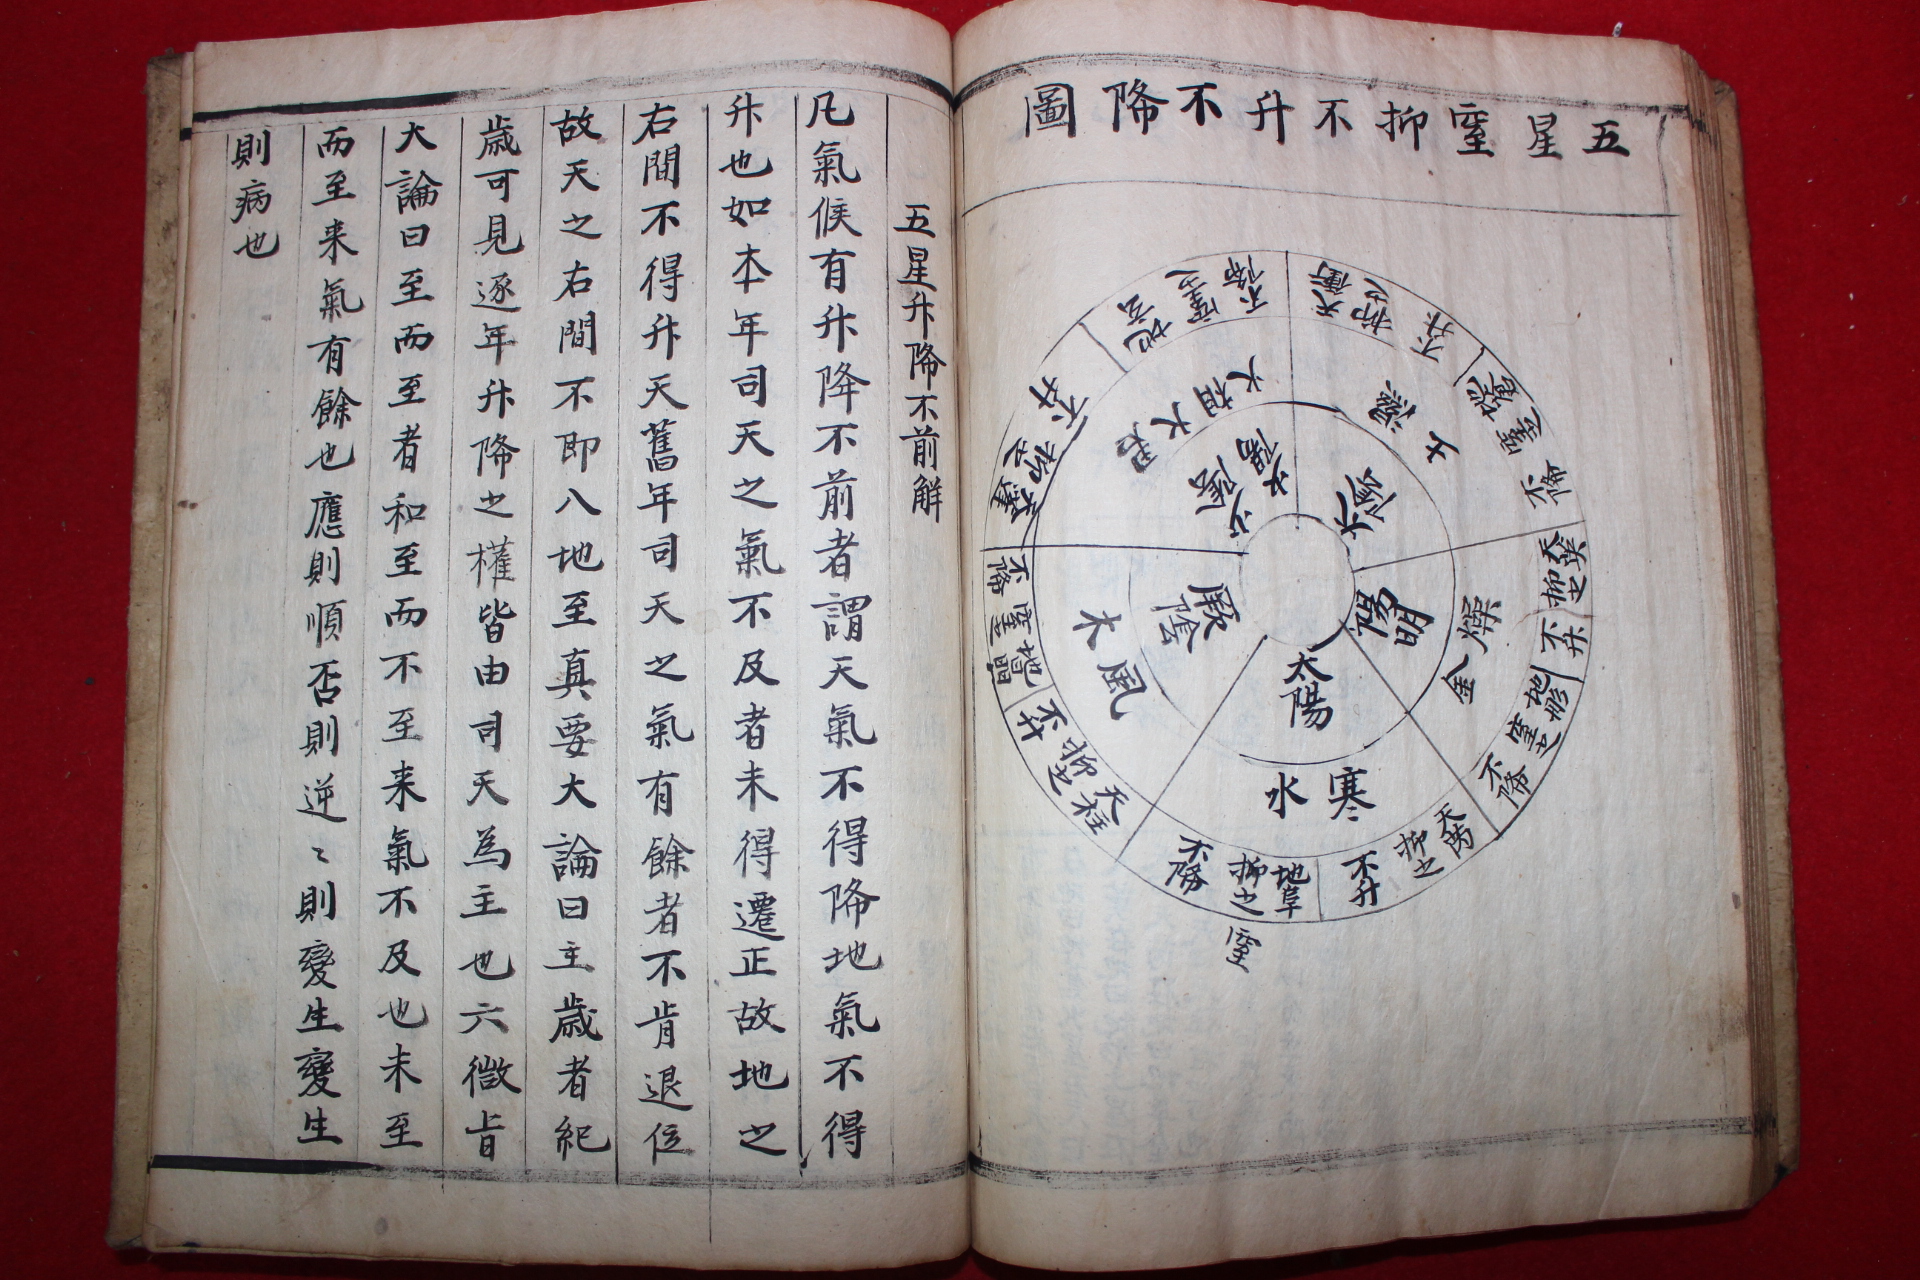 五星窒抑不升不降圖
太陽
陽明
太陰
少陽
少陰
厥陰
寒水
燥金
濕土
相火
君火
風木
天衝抑之不升
地蒼窒之不降
天英抑之不升
地彤窒之不降
天芮抑之不升
地阜抑之不降
窒
天柱抑之不升
地晶窒之不降
天蓬抑之不升
地玄窒之不降
五星升降不前解
凡氣候有升降不前者謂天氣不得降地氣不得
升也如本年司天之氣不及者未得遷正故地之
右間不得升天舊年司天之氣有餘者不肯退位
故天之右間不即入地至真要大論曰主歲者紀
歲可見逐年升降之權皆由司天為主也六微旨
大論曰至而至者和至而不至来氣不及也未至
而至来氣有餘也應則順否則逆〻則變生變生
則病也